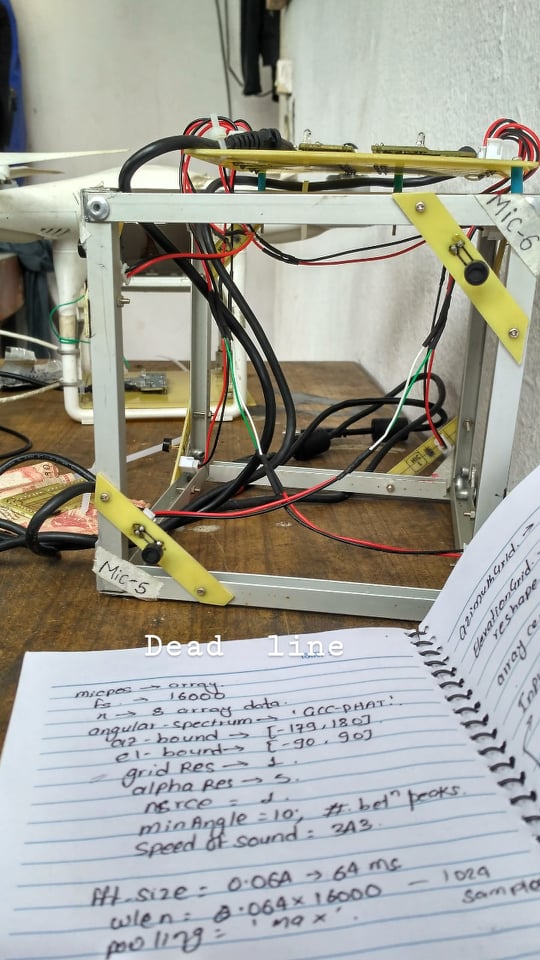 Mic-6
Mic-5
Dead line
micpos → array
fs. → 16000
x → 8 array data.
angular-spectrum → 'GCC-PHAT'.
az-bound → [-179, 180]
el-bound → [-90, 90]
grid Res → 1.
alpha Res → 5.
nsrce = 1.
minAngle = 10; #. betⁿ peaks.
Speed of sound = 343.
fft_size = 0.064 → 64 ms
wlen = 0.064 x 16000 — 1024
samples
pooling = 'max'.
azimuthGrid. →
ElevationGrid. →
reshape
array ce
Inp